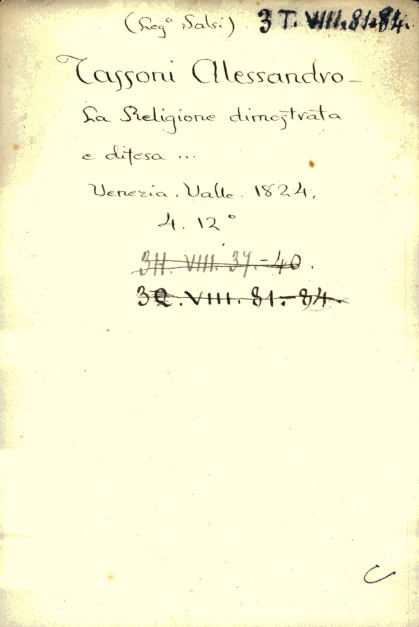 (Leg° Salsi) 3 T. VIII. 81-84.
Tassoni Alessandro_
La Religione dimostrata
e difesa ...
Venezia. Valle. 1824,
4. 12°
3H. VIII. 37.-40.
3Q. VIII. 81.-84.